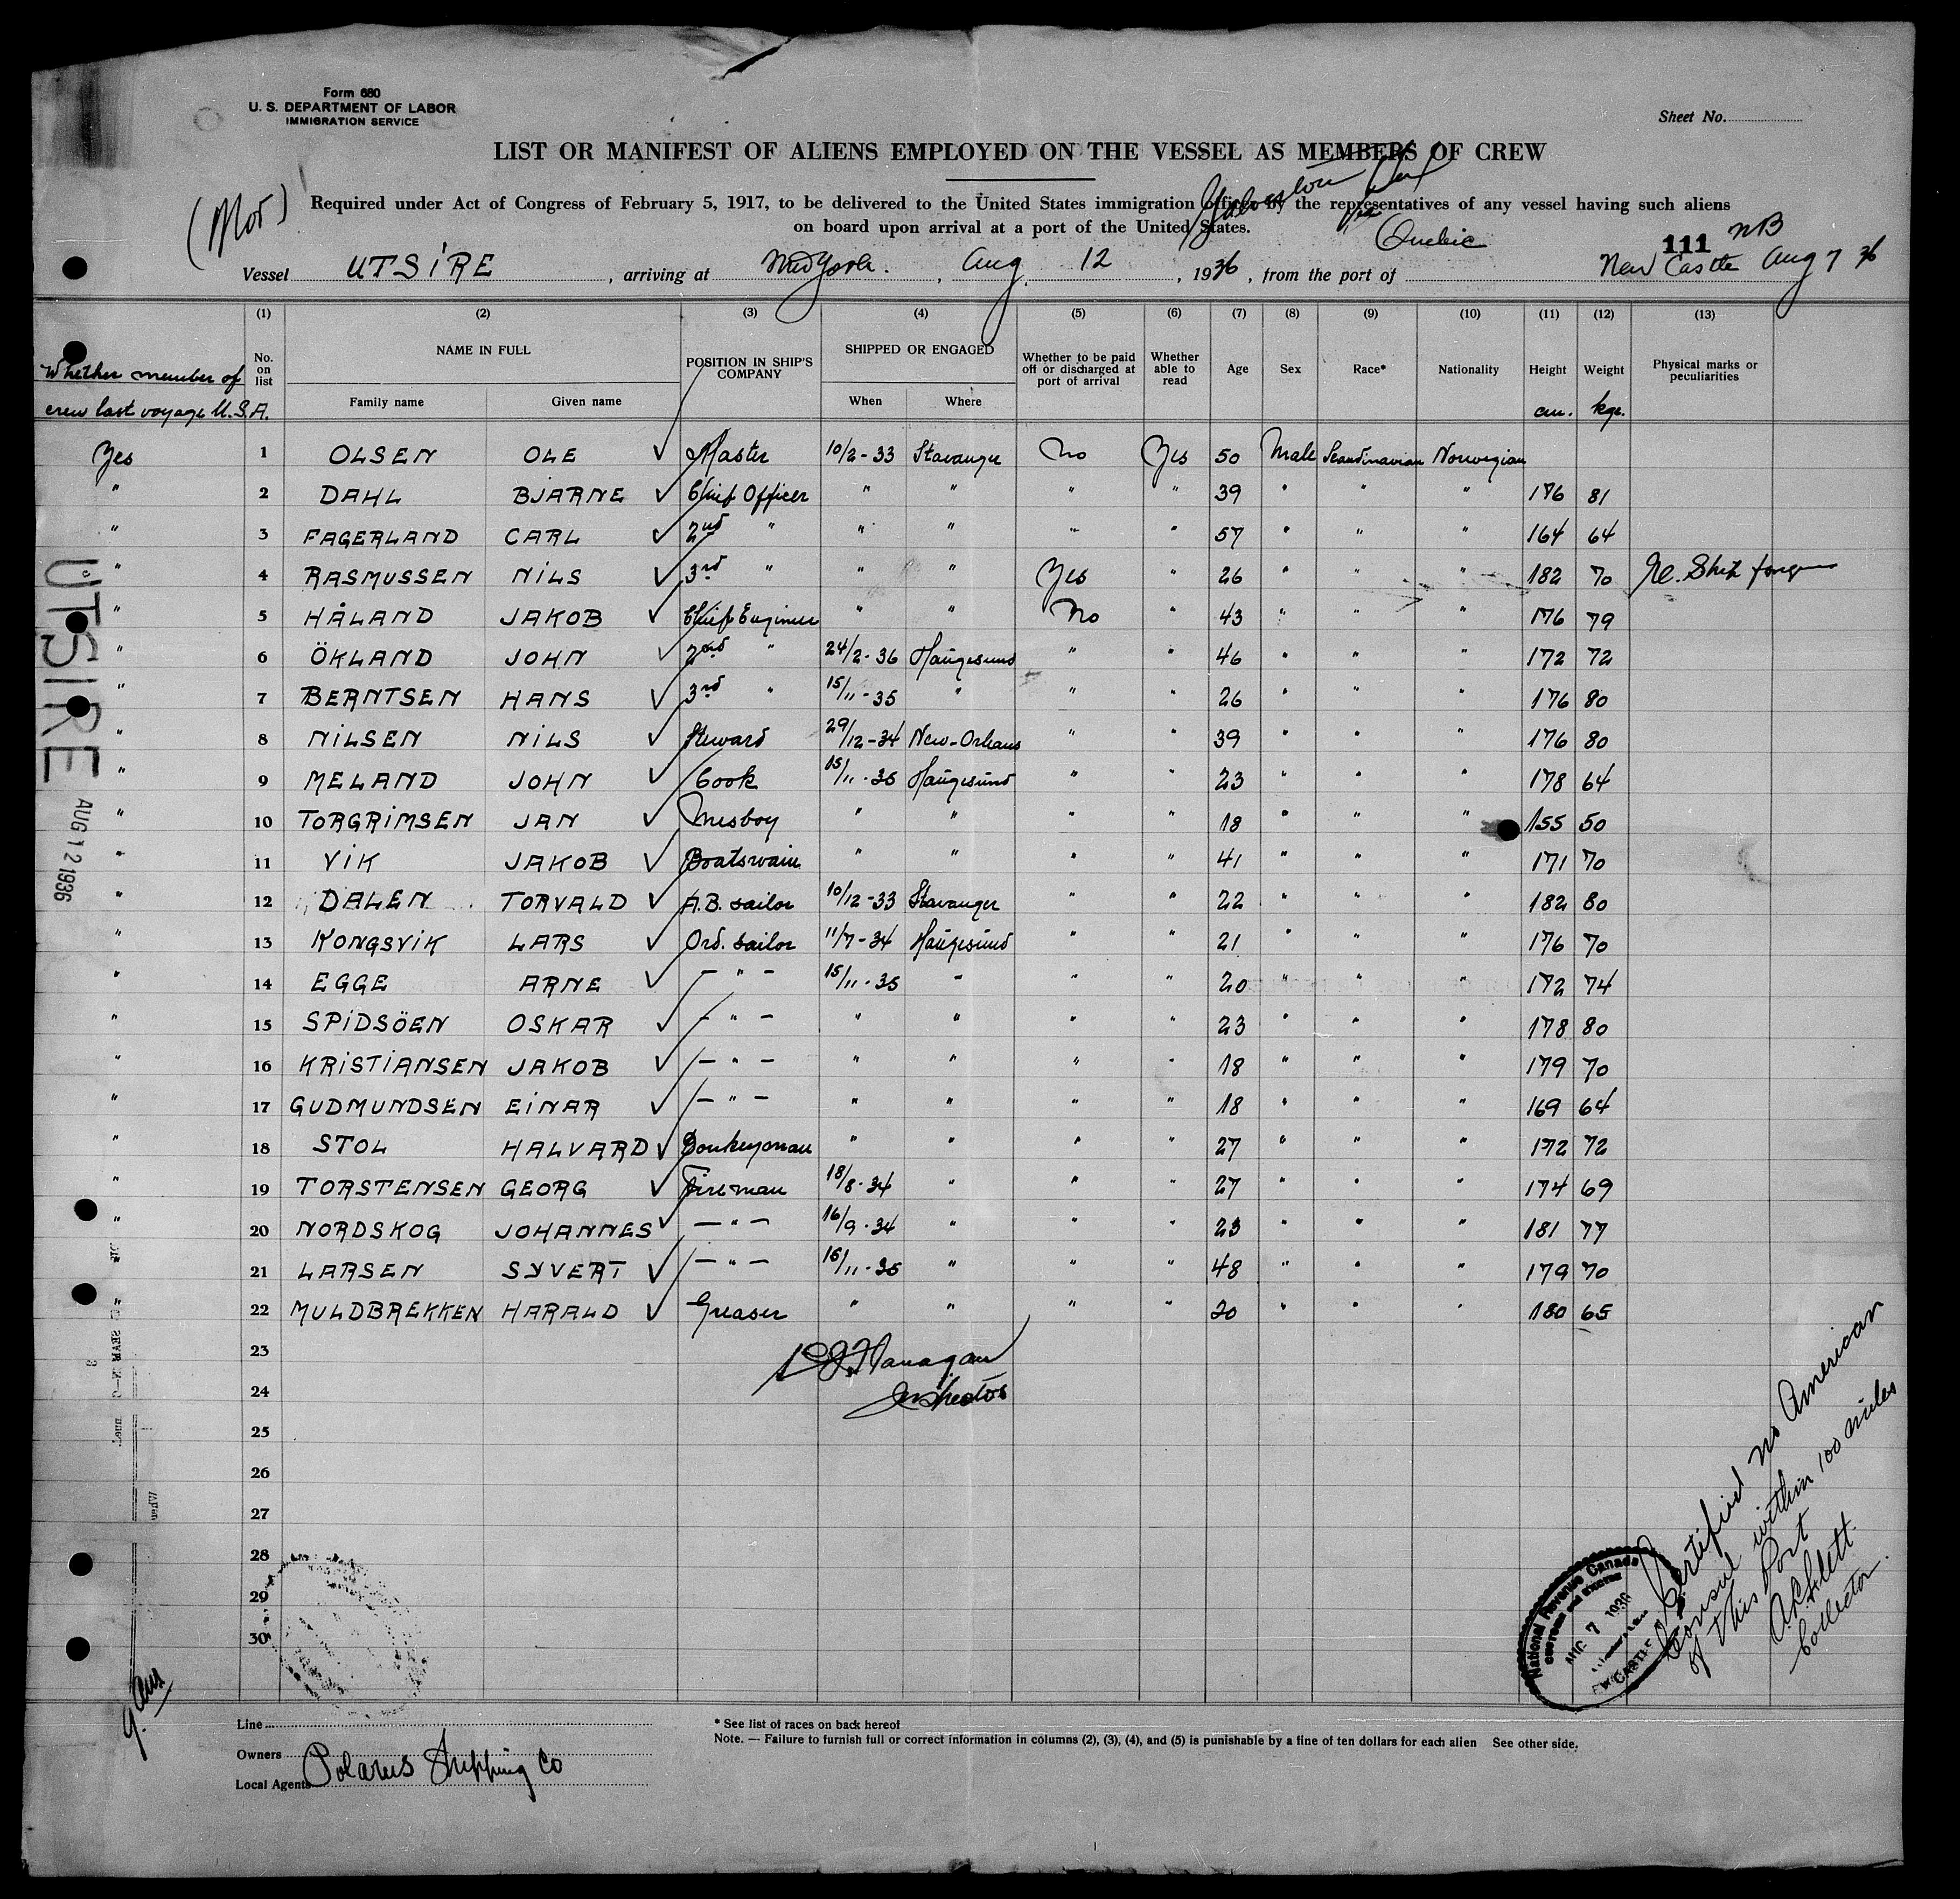 Form 680
U. S. DEPARTMENT OF LABOR
IMMIGRATION SERVICE
Sheet No.
LIST OR MANIFEST OF ALIENS EMPLOYED ON THE VESSEL AS MEMBERS OF CREW
(Nor)
Required under Act of Congress of February 5, 1917, to be delivered to the United States immigration officer by the representatives of any vessel having such aliens
on board upon arrival at a port of the United States.
Galveston Tex
via Quebec
111 NB
Vessel UTSIRE , arriving at New York. , Aug. 12 , 1936 , from the port of New Castle Aug 7 36
(1) (2) (3) (4) (5) (6) (7) (8) (9) (10) (11) (12) (13)
Whether member of crew last voyage U.S.A. No. on list NAME IN FULL Family name Given name POSITION IN SHIP'S COMPANY SHIPPED OR ENGAGED When Where Whether to be paid off or discharged at port of arrival Whether able to read Age Sex Race* Nationality Height cm. Weight kgr. Physical marks or peculiarities
Yes 1 OLSEN OLE Master 10/2-33 Stavanger No Yes 50 Male Scandinavian Norwegian
" 2 DAHL BJARNE Chief Officer " " " " 39 " " " 176 81
" 3 FAGERLAND CARL 2nd " " " " " 57 " " " 164 64
" 4 RASMUSSEN NILS 3rd " " " Yes " 26 " " " 182 70
" 5 HÅLAND JAKOB Chief Engineer " " No " 43 " " " 176 79
" 6 ÖKLAND JOHN 2nd " 24/2-36 Haugesund " " 46 " " " 172 72
" 7 BERNTSEN HANS 3rd " 15/11-35 " " " 26 " " " 176 80
" 8 NILSEN NILS Steward 29/12-34 New-Orleans " " 39 " " " 176 80
" 9 MELAND JOHN Cook 15/11-35 Haugesund " " 23 " " " 178 64
" 10 TORGRIMSEN JAN Mesboy " " " " 18 " " " 155 50
" 11 VIK JAKOB Boatswain " " " " 41 " " " 171 70
" 12 DALEN TORVALD A.B. sailor 10/12-33 Stavanger " " 22 " " " 182 80
" 13 KONGSVIK LARS Ord. sailor 11/7-34 Haugesund " " 21 " " " 176 70
" 14 EGGE ARNE — " — 15/11-35 " " " 20 " " " 172 74
" 15 SPIDSÖEN OSKAR — " — " " " " 23 " " " 178 80
" 16 KRISTIANSEN JAKOB — " — " " " " 18 " " " 179 70
" 17 GUDMUNDSEN EINAR — " — " " " " 18 " " " 169 64
" 18 STOL HALVARD Donkeyman " " " " 27 " " " 172 72
" 19 TORSTENSEN GEORG Fireman 18/8-34 " " " 27 " " " 174 69
" 20 NORDSKOG JOHANNES — " — 16/9-34 " " " 23 " " " 181 77
" 21 LARSEN SYVERT — " — 15/11-35 " " " 48 " " " 179 70
" 22 MULDBREKKEN HARALD Greaser " " " " 20 " " " 180 65
23
24
Flanagan
Inspector
25
26
27
28
29
30
UTSIRE
AUG 12 1936
Certified no American
Consul within 100 miles
of this Port
Collector.
National Revenue Canada
CUSTOMS AND EXCISE
AUG 7 1936
9 am
Line
Owners
Local Agents Polarus Shipping Co
* See list of races on back hereof
Note. — Failure to furnish full or correct information in columns (2), (3), (4), and (5) is punishable by a fine of ten dollars for each alien See other side.